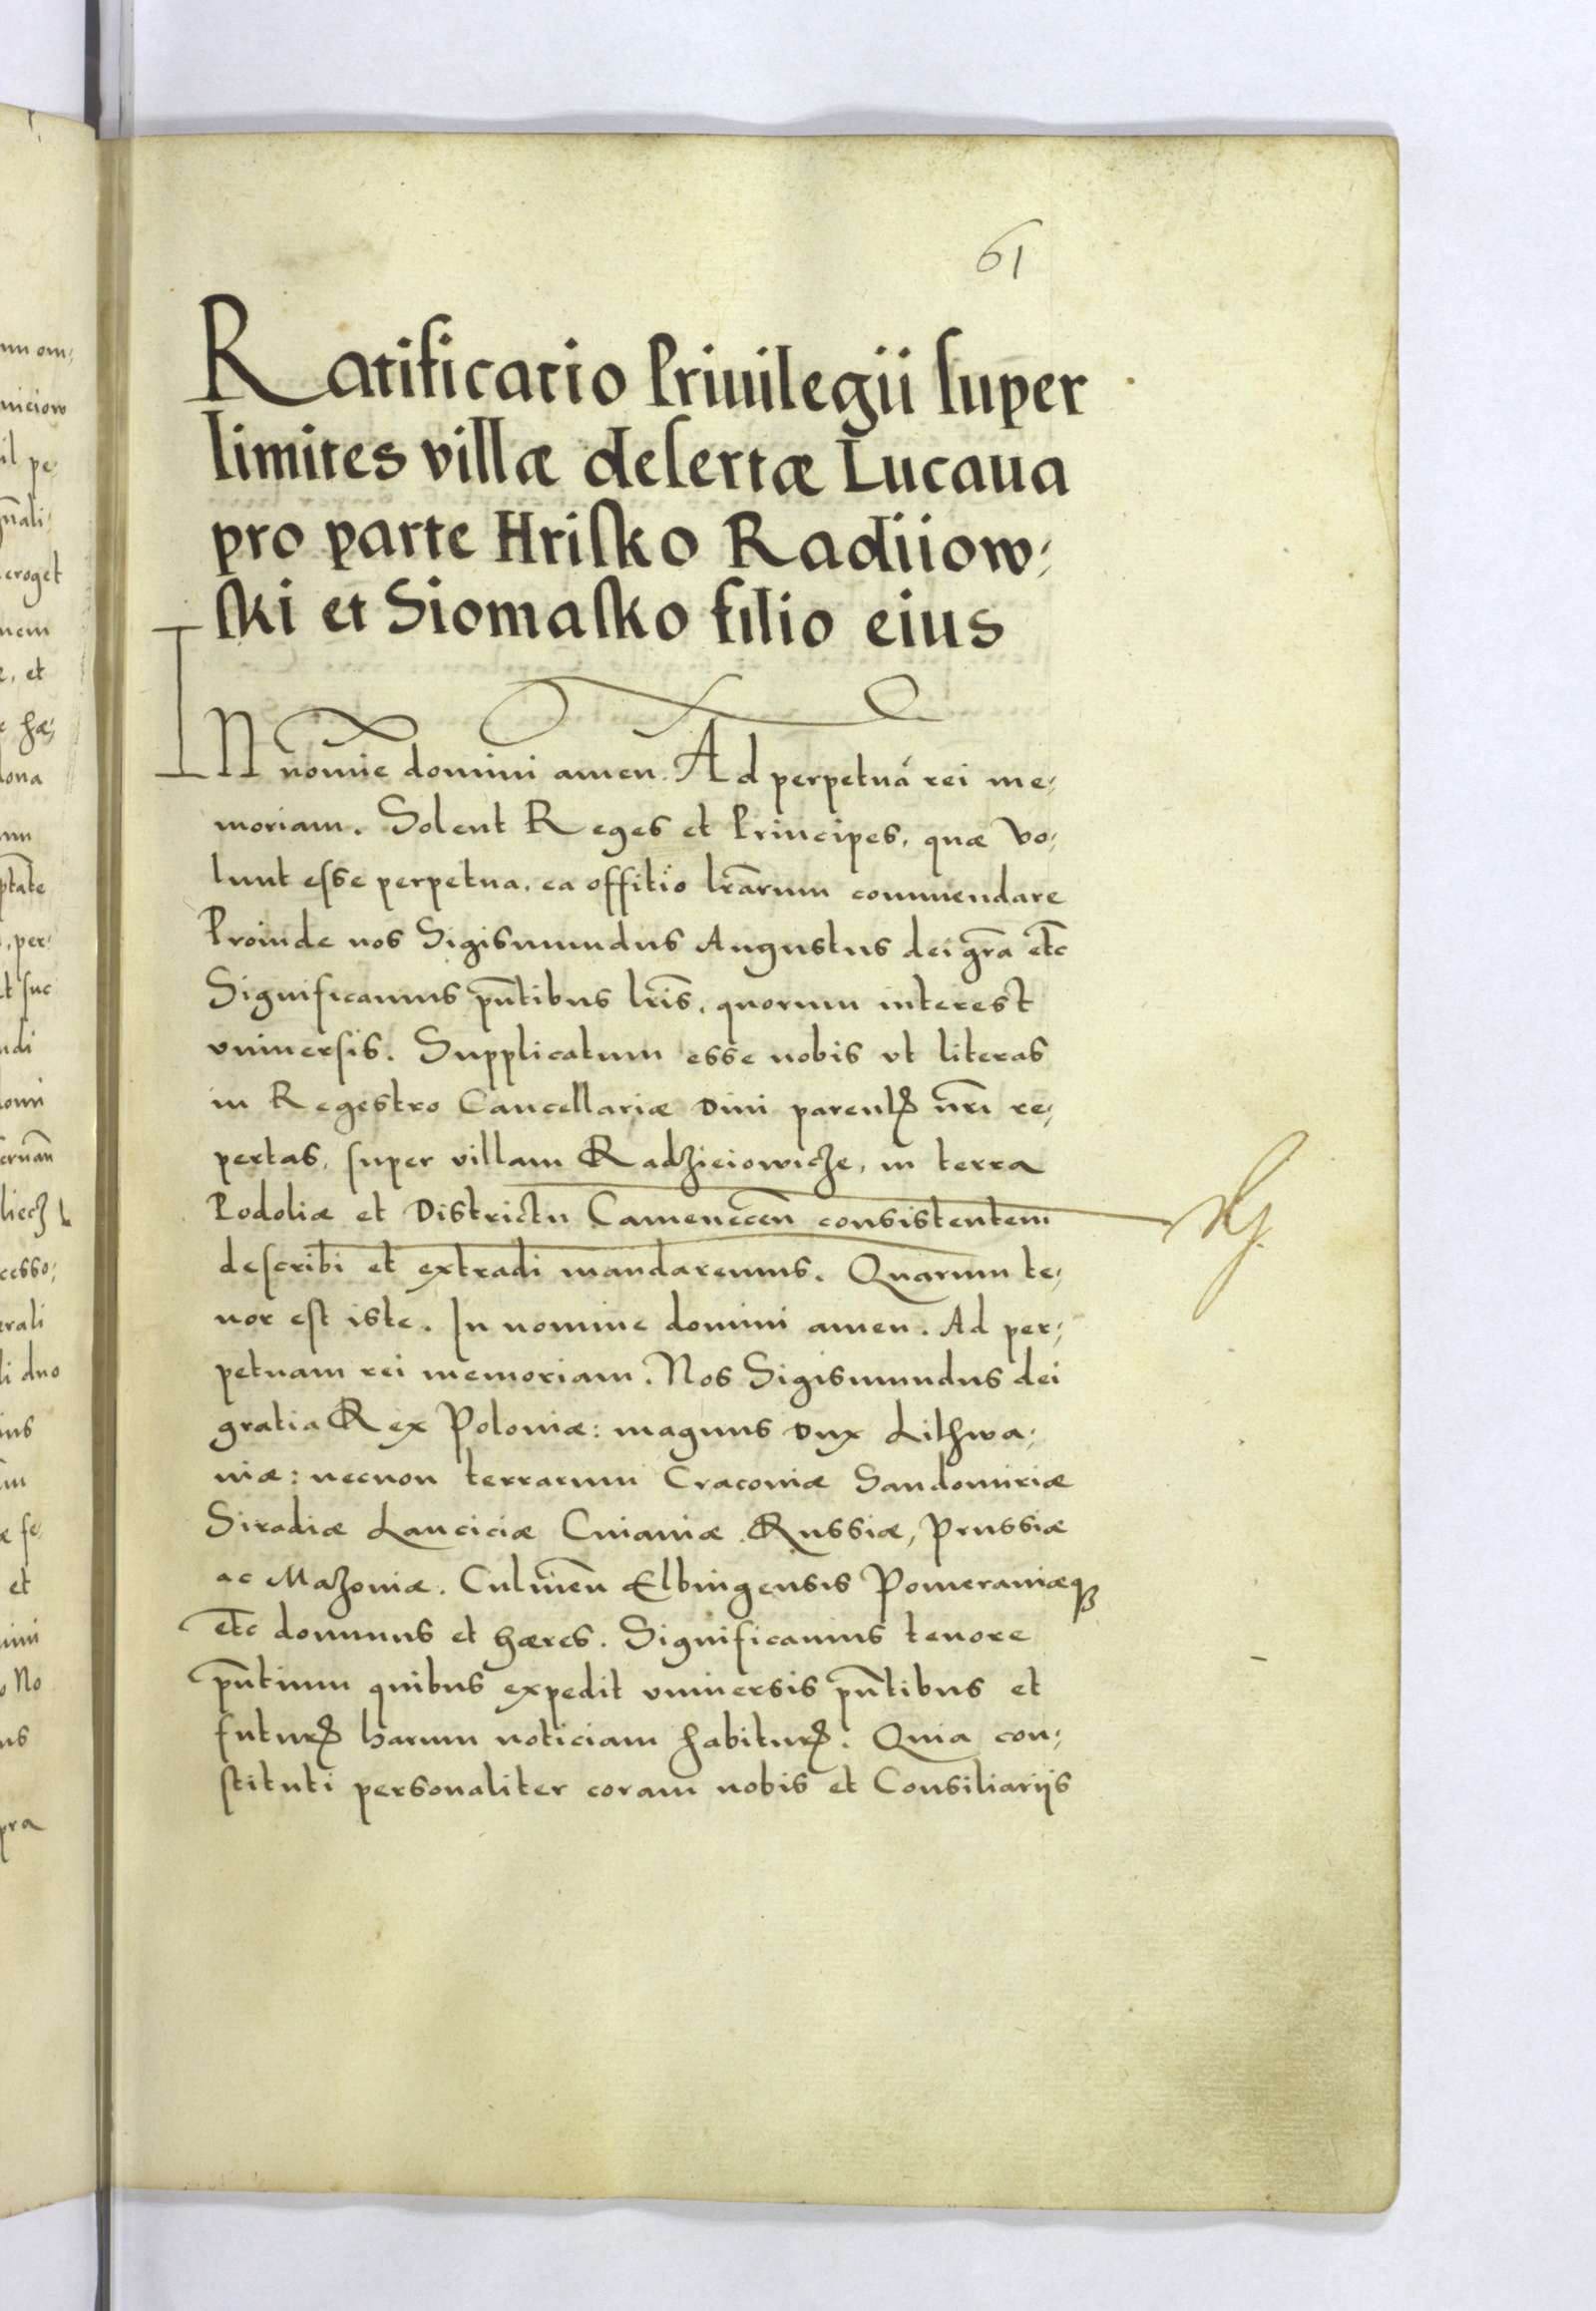 61
Ratificatio Priuilegii super
limites villæ desertæ Lucaua
pro parte Hrisko Radiiow;
ski et Siomasko filio eius
IN nōmie domini amen. Ad perpetuā rei me;
moriam. Solent Reges et Principes, quæ vo;
lunt esse perpetua, ea offitio lrārum commendare
Proinde nos Sigismundus Augustus dei grā etc̄
Significamus pn̄tibus lrīs, quorum interest
vniuersis. Supplicatum esse nobis vt literas
in Regestro Cancellariæ Diui parentꝭ nr̄i re;
pertas, super villam Radzieiowicze, in terra
Podoliæ et Districtu Camenecen̄ consistentem
describi et extradi mandaremus. Quarum te;
nor est iste. In nomine domini amen. Ad per;
petuam rei memoriam. Nos Sigismundus dei
gratia Rex Poloniæ: magnus Dux Lithwa;
niæ: necnon terrarum Cracouiæ Sandomiriæ
Siradiæ Lanciciæ Cuiauiæ Russiæ, Prussiæ
ac Mazouiæ. Culmen̄ Elbingensis Pomeraniæqꝫ
etc̄ dominus et hæres. Significamus tenore
pn̄tium quibus expedit vniuersis pn̄tibus et
futurꝭ harum noticiam habiturꝭ. Quia con;
stituti personaliter coram nobis et Consiliariis
nn om;
niciow
il pe;
gn̄ali;
eroget
nem
e, et
e hæ;
dona
ptate
, per;
t suc
ndi
liecz
cesso;
erali
li duo
ius
æ fe;
et
o No
us
pra